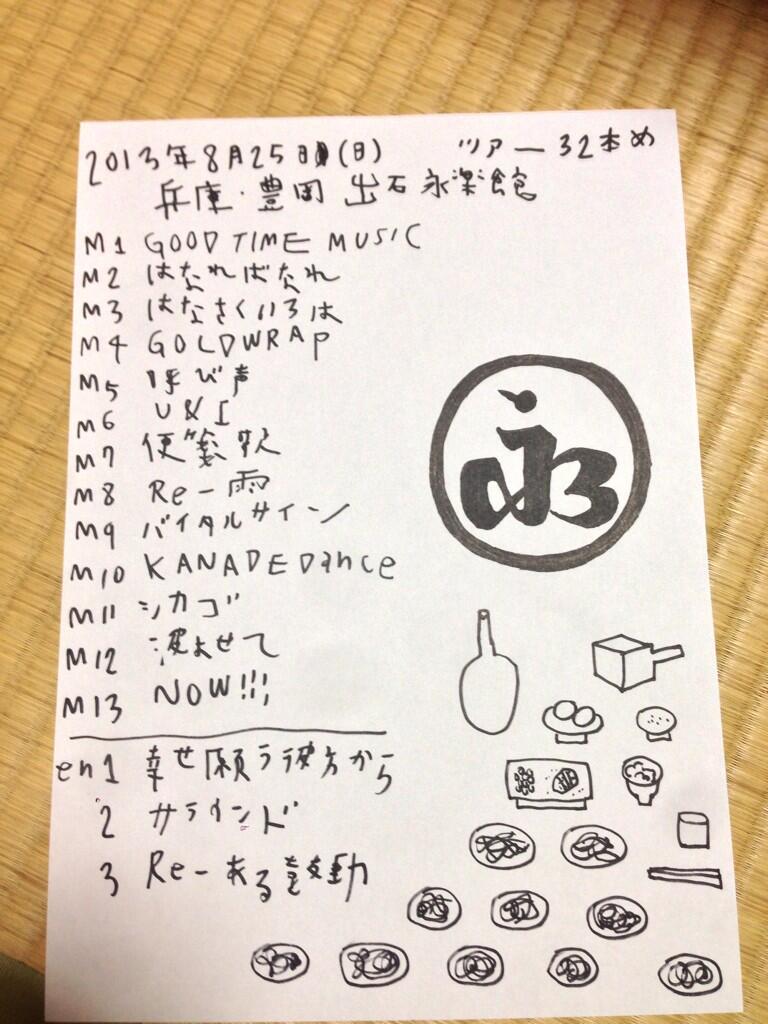 2013年8月25日(日) ツアー32本め
兵庫・豊岡 出石永楽館
M1 GOOD TIME MUSIC
M2 はなればなれ
M3 はなさくいろは
M4 GOLDWRAP
M5 呼び声
M6 U&I
M7 便箋歌
M8 Re-雨
M9 バイタルサイン
M10 KANADEDance
M11 シカゴ
M12 波よせて
M13 NOW!!!
en1 幸せ願う彼方から
2 サラウンド
3 Re-ある鼓動
永